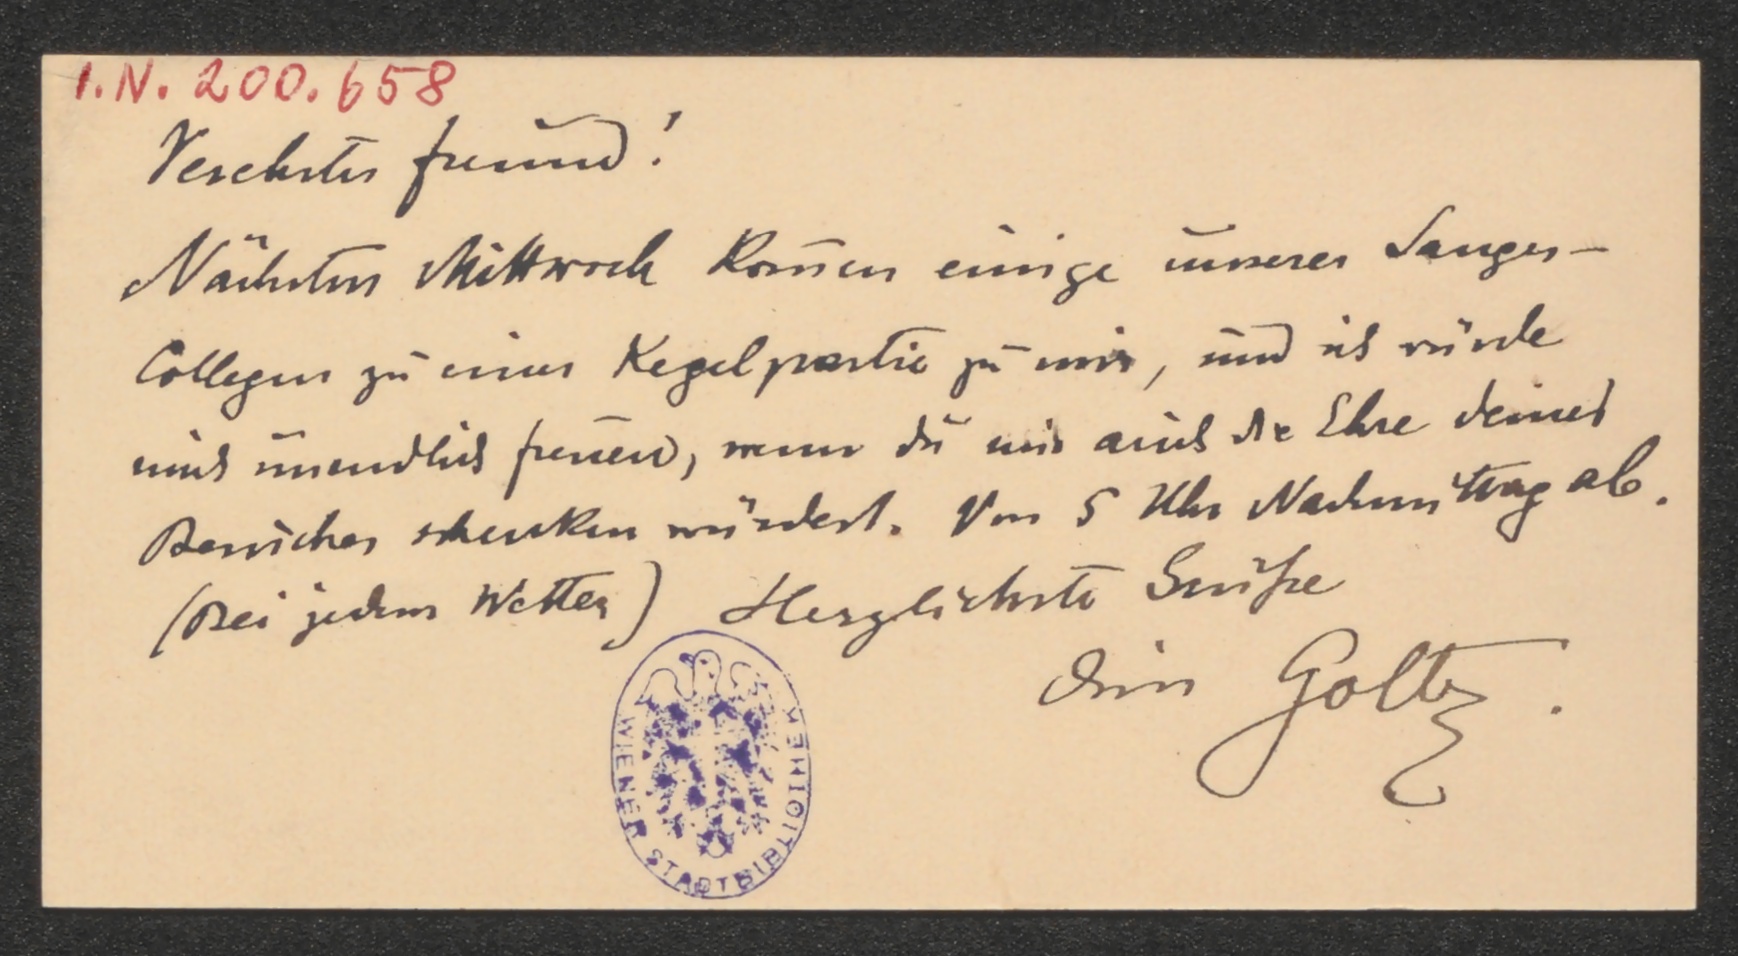 I.N. 200.658
Verehrter Freund!
Nächsten Mittwoch kom̅en einige unserer Sanges-
Collegen zu einer Kegelpartie zu mir, und ich würde
mich unendlich freuen, wenn du mir auch die Ehre deines
Besuches schenken würdest. Von 5 Uhr Nachmittag ab.
(Bei jedem Wetter) Herzlichste Grüße
Dein Goltz.
WIENER STADTBIBLIOTHEK